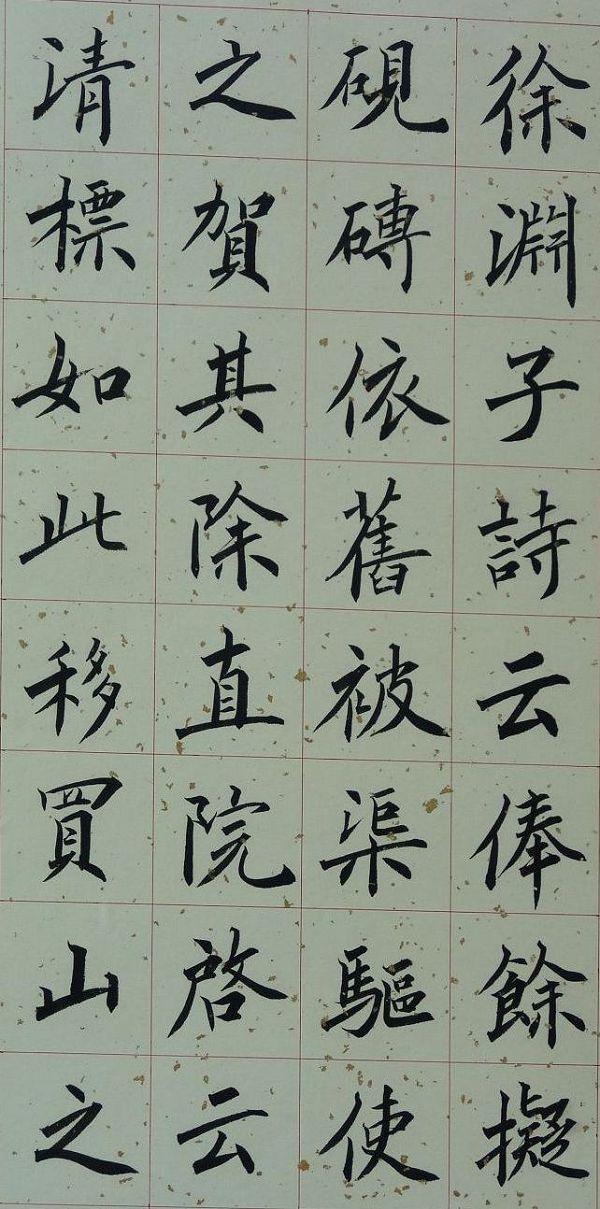 徐淵子詩云俸餘擬
硯磚依舊被渠驅使
之賀其除直院啓云
清標如此移買山之